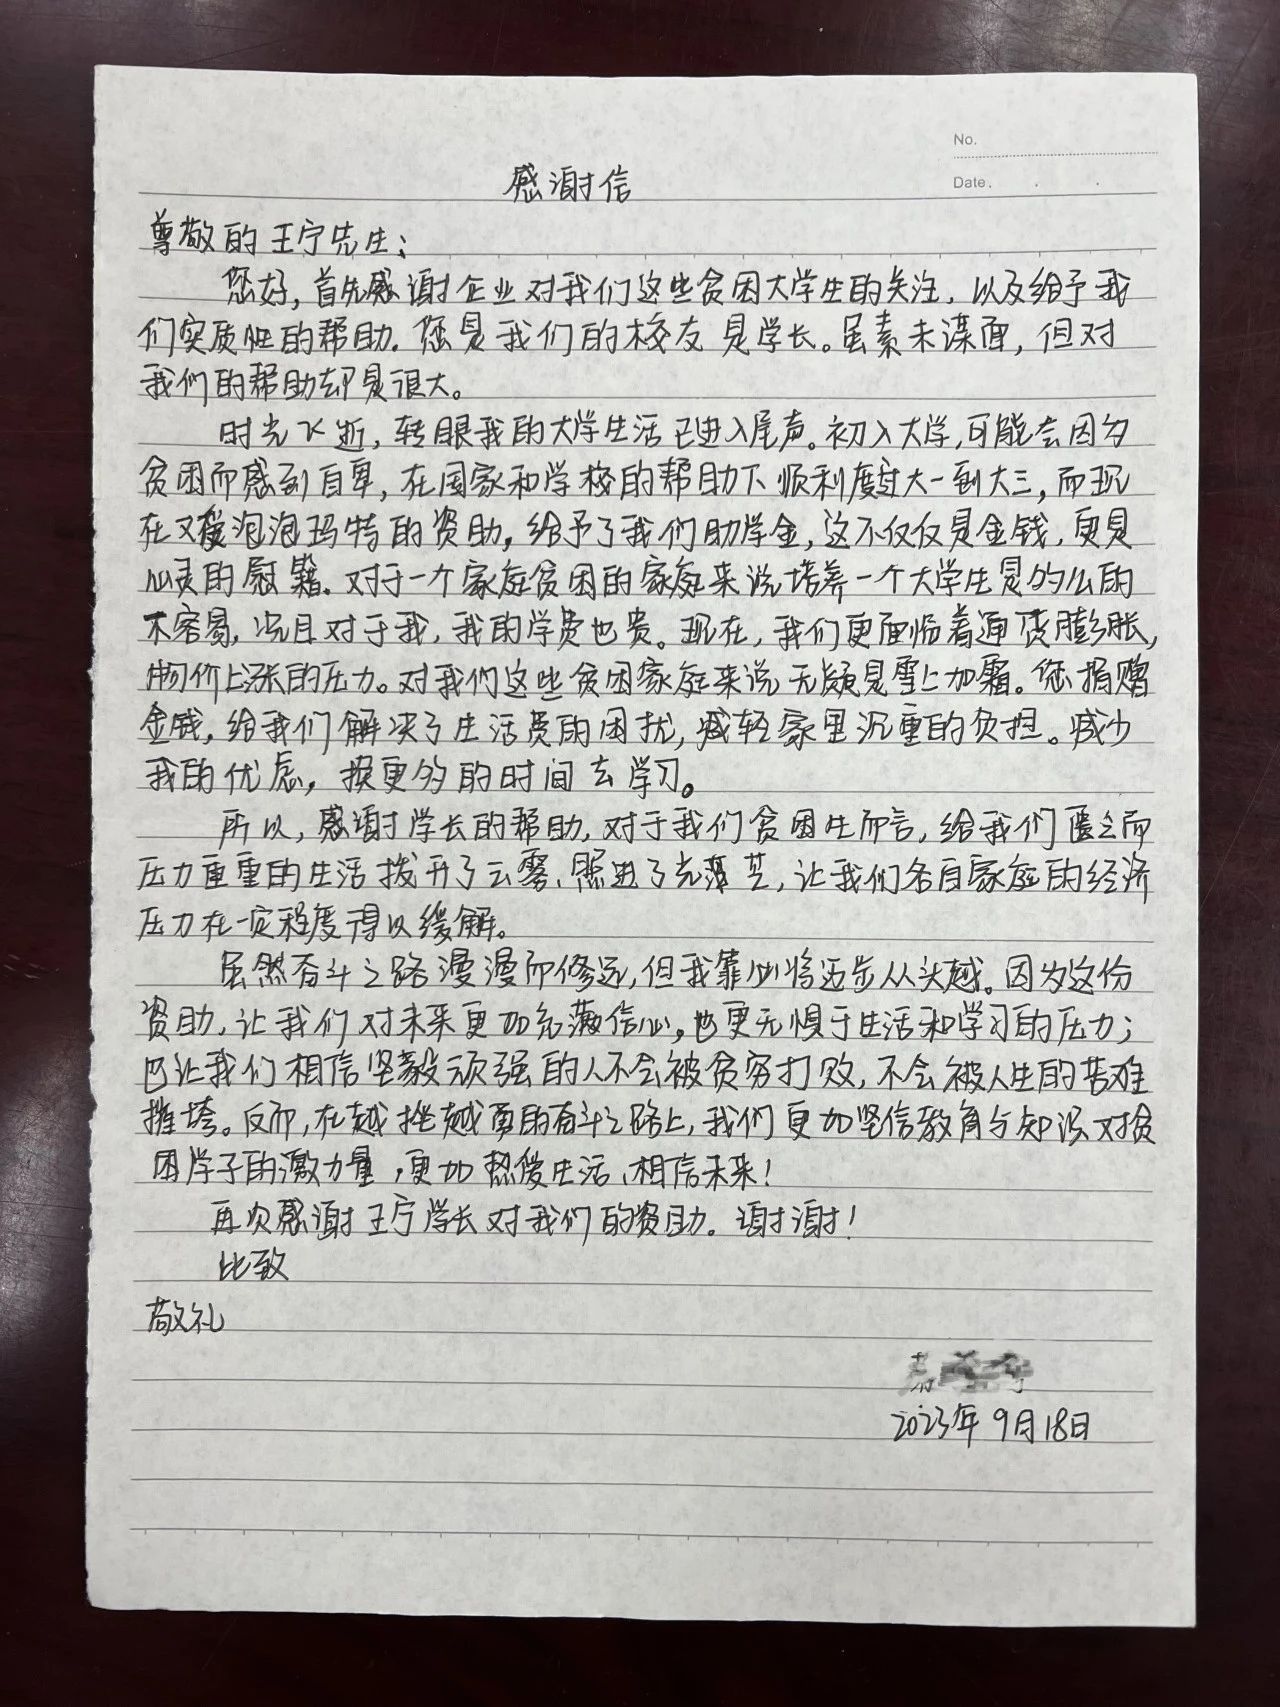 No.
Date.
感谢信
尊敬的王宁先生:
您好,首先感谢企业对我们这些贫困大学生的关注,以及给予我
们实质性的帮助.您是我们的校友 是学长。虽素未谋面,但对
我们的帮助却是很大。
时光飞逝,转眼我的大学生活已进入尾声.初入大学,可能会因为
贫困而感到自卑,在国家和学校的帮助下顺利度过大一到大三,而现
在又获泡泡玛特的资助,给予了我们助学金,这不仅仅是金钱,更是
心灵的慰籍.对于一个家庭贫困的家庭来说培养一个大学生是多么的
不容易,况且对于我,我的学费也贵。现在,我们更面临着通货膨胀,
物价上涨的压力。对我们这些贫困家庭来说无疑是雪上加霜。您捐赠
金钱,给我们解决了生活费的困扰,减轻家里沉重的负担。减少
我的忧虑,换更多的时间去学习。
所以,感谢学长的帮助,对于我们贫困生而言,给我们匮乏而
压力重重的生活拨开了云雾、照进了光芒,让我们各自家庭的经济
压力在一定程度得以缓解。
虽然奋斗之路漫漫而修远,但我辈必将迈步从头越。因为这份
资助,让我们对未来更加充满信心,也更无惧于生活和学习的压力;
也让我们相信坚毅顽强的人不会被贫穷打败,不会被人生的苦难
摧垮。反而,在越挫越勇的奋斗之路上,我们更加坚信教育与知识对贫
困学子的激力量,更加热爱生活、相信未来!
再次感谢王宁学长对我们的资助。谢谢!
此致
敬礼
2023年9月18日